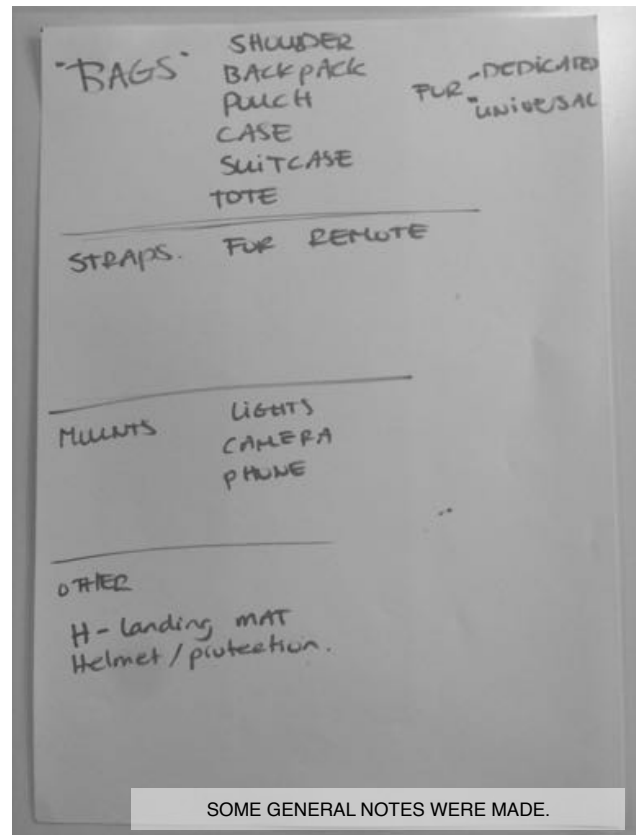 "BAGS"
SHOULDER
BACKPACK
POUCH
CASE
SUITCASE
TOTE
FOR - DEDICATED
- UNIVERSAL
STRAPS. FOR REMOTE
MOUNTS
LIGHTS
CAMERA
PHONE
OTHER
H-landing MAT
Helmet/protection.
SOME GENERAL NOTES WERE MADE.